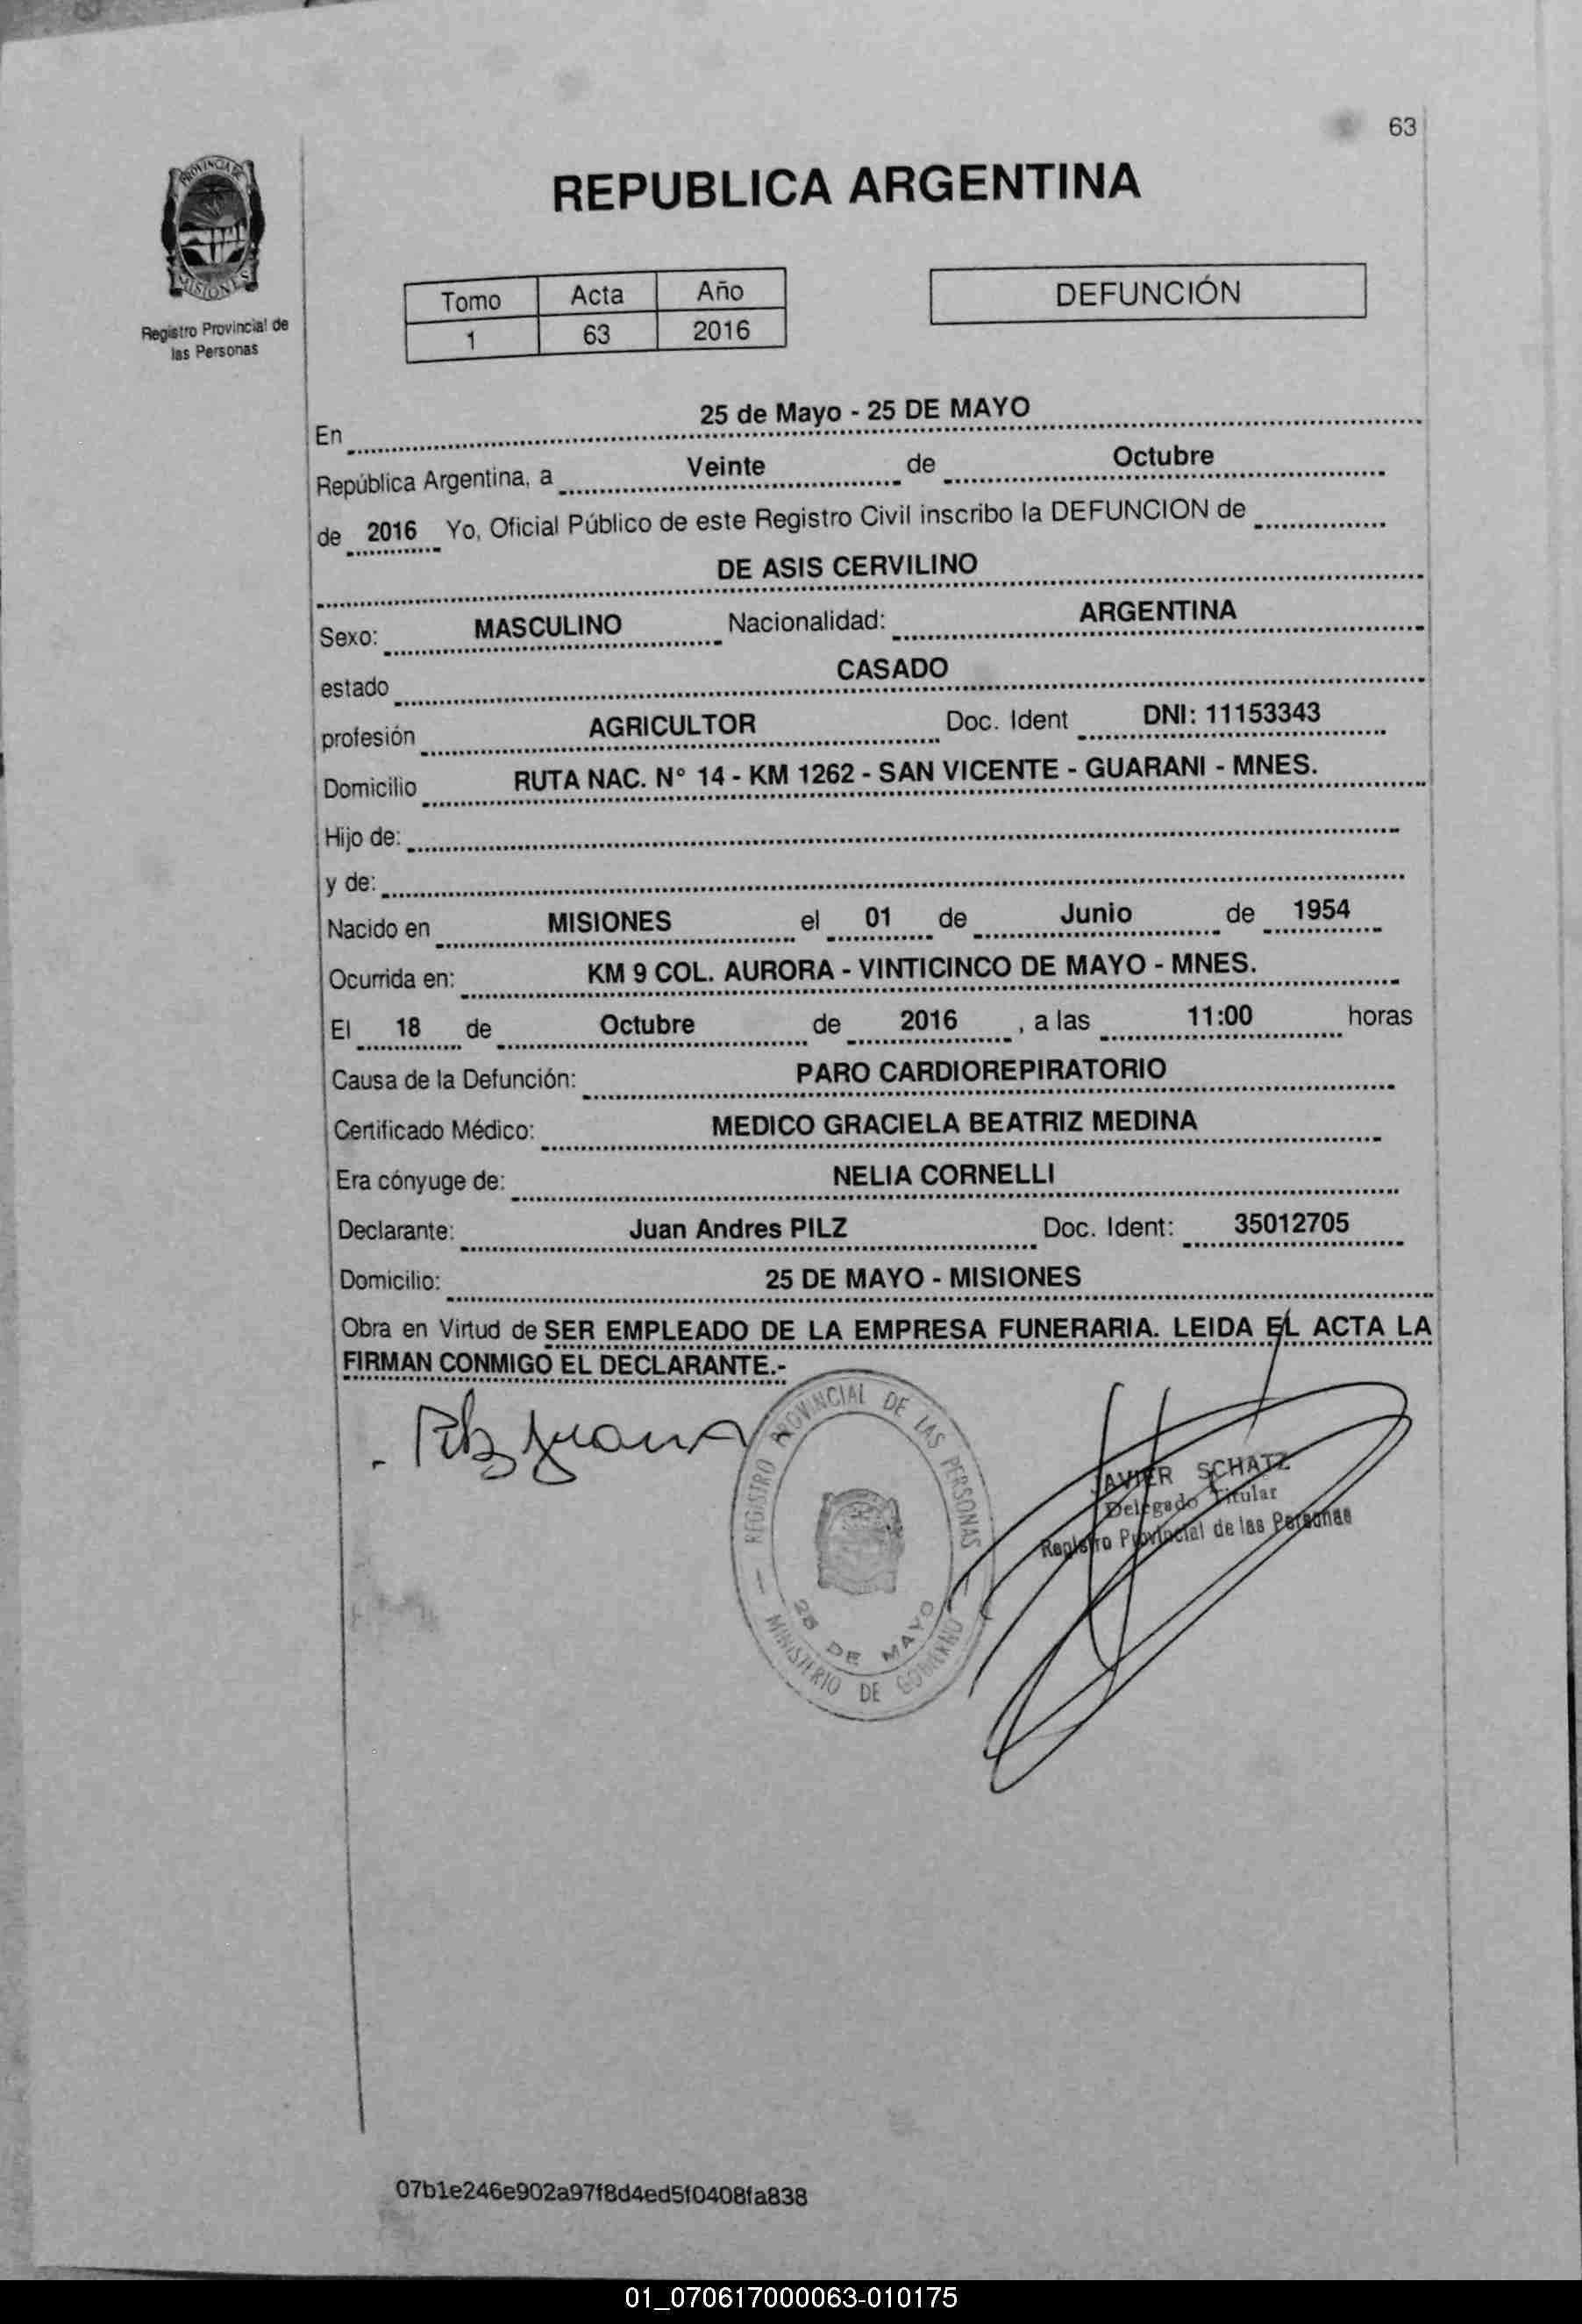 63
PROVINCIA DE
MISIONES
Registro Provincial de
las Personas
REPUBLICA ARGENTINA
Tomo Acta Año
1 63 2016
DEFUNCIÓN
En 25 de Mayo - 25 DE MAYO
República Argentina, a Veinte de Octubre
de 2016 Yo, Oficial Público de este Registro Civil inscribo la DEFUNCION de
DE ASIS CERVILINO
Sexo: MASCULINO Nacionalidad: ARGENTINA
estado CASADO
profesión AGRICULTOR Doc. Ident DNI: 11153343
Domicilio RUTA NAC. N° 14 - KM 1262 - SAN VICENTE - GUARANI - MNES.
Hijo de:
y de:
Nacido en MISIONES el 01 de Junio de 1954
Ocurrida en: KM 9 COL. AURORA - VINTICINCO DE MAYO - MNES.
El 18 de Octubre de 2016 , a las 11:00 horas
Causa de la Defunción: PARO CARDIOREPIRATORIO
Certificado Médico: MEDICO GRACIELA BEATRIZ MEDINA
Era cónyuge de: NELIA CORNELLI
Declarante: Juan Andres PILZ Doc. Ident: 35012705
Domicilio: 25 DE MAYO - MISIONES
Obra en Virtud de SER EMPLEADO DE LA EMPRESA FUNERARIA. LEIDA EL ACTA LA
FIRMAN CONMIGO EL DECLARANTE.-
REGISTRO PROVINCIAL DE LAS PERSONAS
25 DE MAYO
MINISTERIO DE GOBIERNO
JAVIER SCHATZ
Delegado Titular
Registro Provincial de las Personas
07b1e246e902a97f8d4ed5f0408fa838
01_070617000063-010175